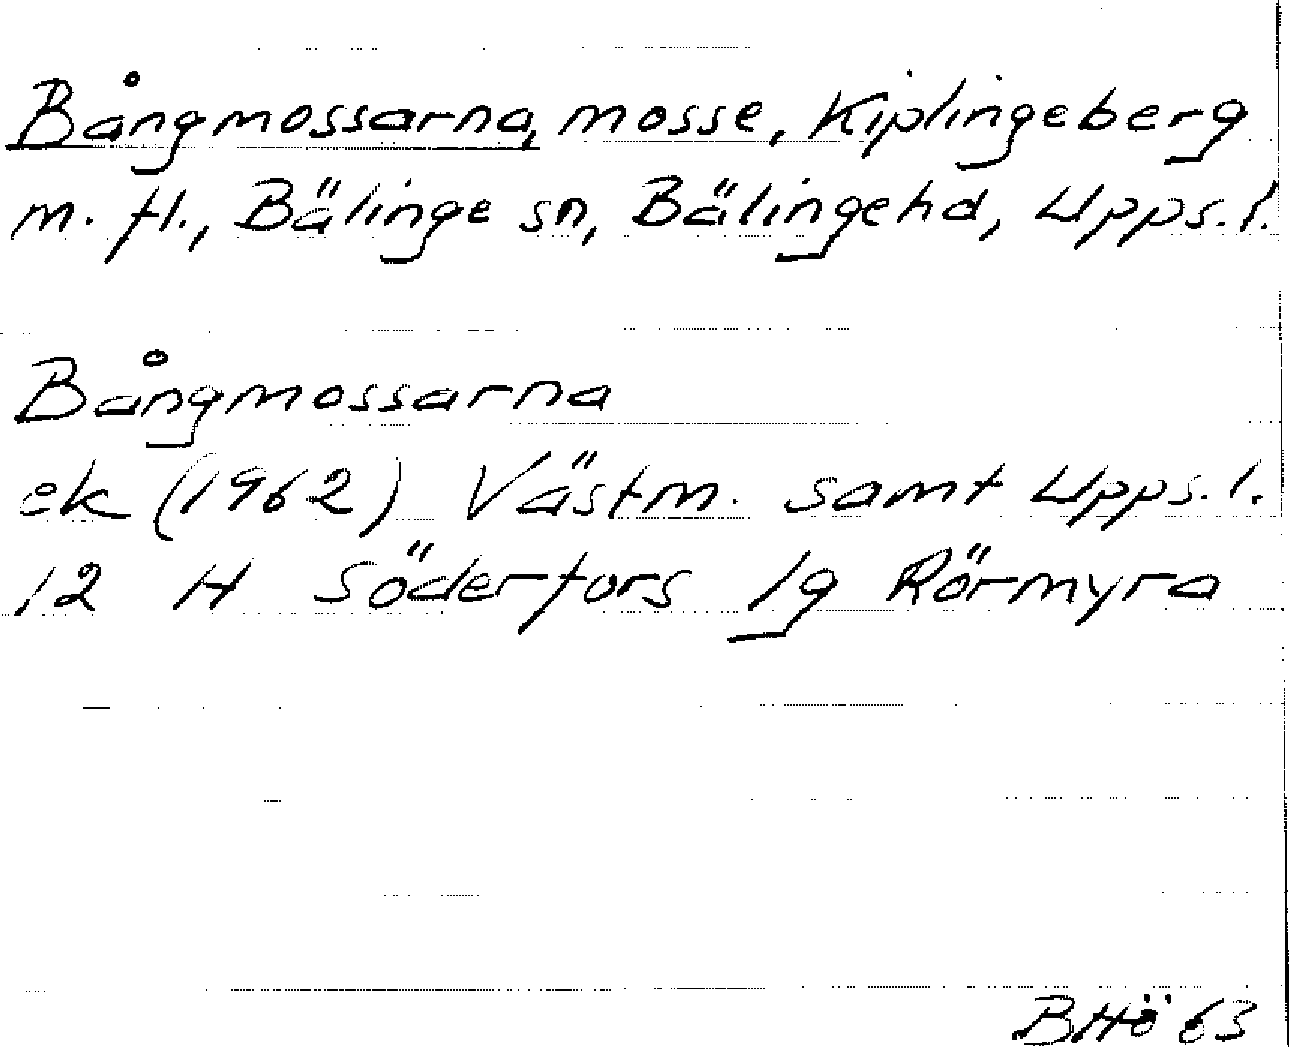 Bångmossarna, mosse, Kiplingeberg
m. fl., Bälinge sn, Bälingehd, Upps. l.
Bångmossarna
ek (1962) Västm. samt Upps. l.
12 H Söderfors 1g Rörmyra
BHö 63